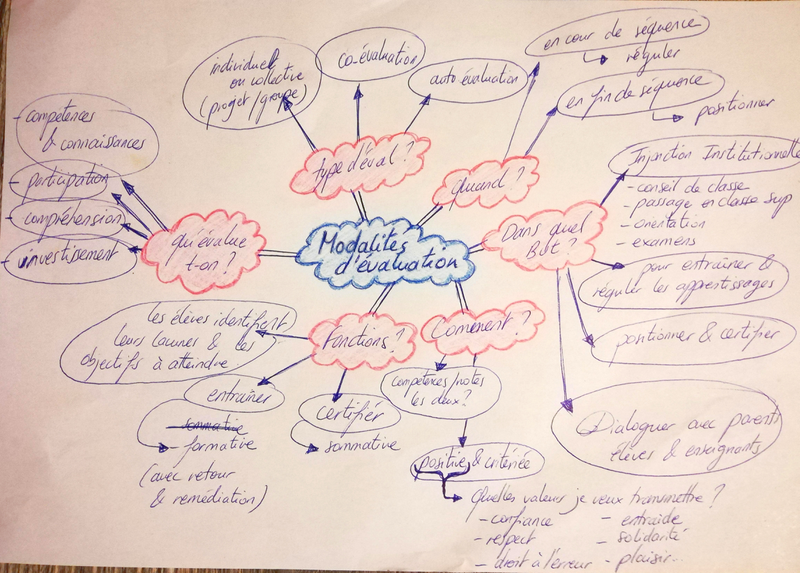 individuel
ou collective
(projet/groupe)
co-évaluation
auto évaluation
en cour de séquence
réguler
en fin de séquence
positionner
- compétences
& connaissances
- participation
- compréhension
- investisement
type d'éval ?
Quand ?
Injonction Institutionnelle
- conseil de classe
- passage en classe sup
- orientation
- examens
qu'évalue
t-on ?
Modalités
d'évaluation
Dans quel
But ?
pour entraîner &
réguler les apprentissages
positionner & certifier
Dialoguer avec parents
élèves & enseignants
Les élèves identifient
leurs lacunes & les
objectifs à atteindre
Fonctions ?
Comment ?
entraîner
sommative
- formative
(avec retour
& remédiation)
certifier
sommative
compétences/notes
les deux ?
positive & critériée
Quelles valeurs je veux transmettre ?
- confiance
- respect
- droit à l'erreur
- entraide
- solidarité
- plaisir...